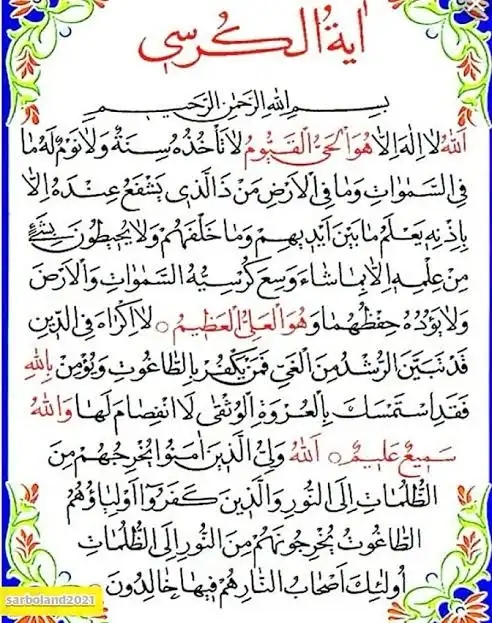 اٰيةُ الكُرسي
بِسْمِ اللهِ الرَّحْمٰنِ الرَّحيمِ
اَللهُ لا اِلٰهَ اِلاّ هُوَ الْحَیُّ الْقَیُّومُ لا تَأْخُذُهُ سِنَةٌ وَلا نَوْمٌ لَهُ ما
فِی السَّمٰواتِ وَما فِی الْاَرْضِ مَنْ ذَا الَّذی یَشْفَعُ عِنْدَهُ اِلاّ
بِاِذْنِهِ یَعْلَمُ ما بَیْنَ اَیْدیهِمْ وَما خَلْفَهُمْ وَلا یُحیطُونَ بِشَیْءٍ
مِنْ عِلْمِهِ اِلاّ بِما شاءَ وَسِعَ كُرْسِیُّهُ السَّمٰواتِ وَالْاَرْضَ
وَلا یَؤُدُهُ حِفْظُهُما وَهُوَ الْعَلِیُّ الْعَظیمُ ○ لا اِكْراهَ فِی الدّینِ
قَدْ تَبَیَّنَ الرُّشْدُ مِنَ الْغَیِّ فَمَنْ یَكْفُرْ بِالطّاغُوتِ وَیُؤْمِنْ بِاللهِ
فَقَدِ اسْتَمْسَكَ بِالْعُرْوَةِ الْوُثْقیٰ لَا انْفِصامَ لَها وَاللهُ
سَمیعٌ عَلیمٌ ○ اَللهُ وَلِیُّ الَّذینَ اٰمَنُوا یُخْرِجُهُمْ مِنَ
الظُّلُماتِ اِلَی النُّورِ وَالَّذینَ كَفَرُوا اَوْلِیاؤُهُمُ
الطّاغُوتُ یُخْرِجُونَهُمْ مِنَ النُّورِ اِلَی الظُّلُماتِ
اُولٰئِكَ اَصْحابُ النّارِ هُمْ فیها خالِدُونَ
sarboland2021